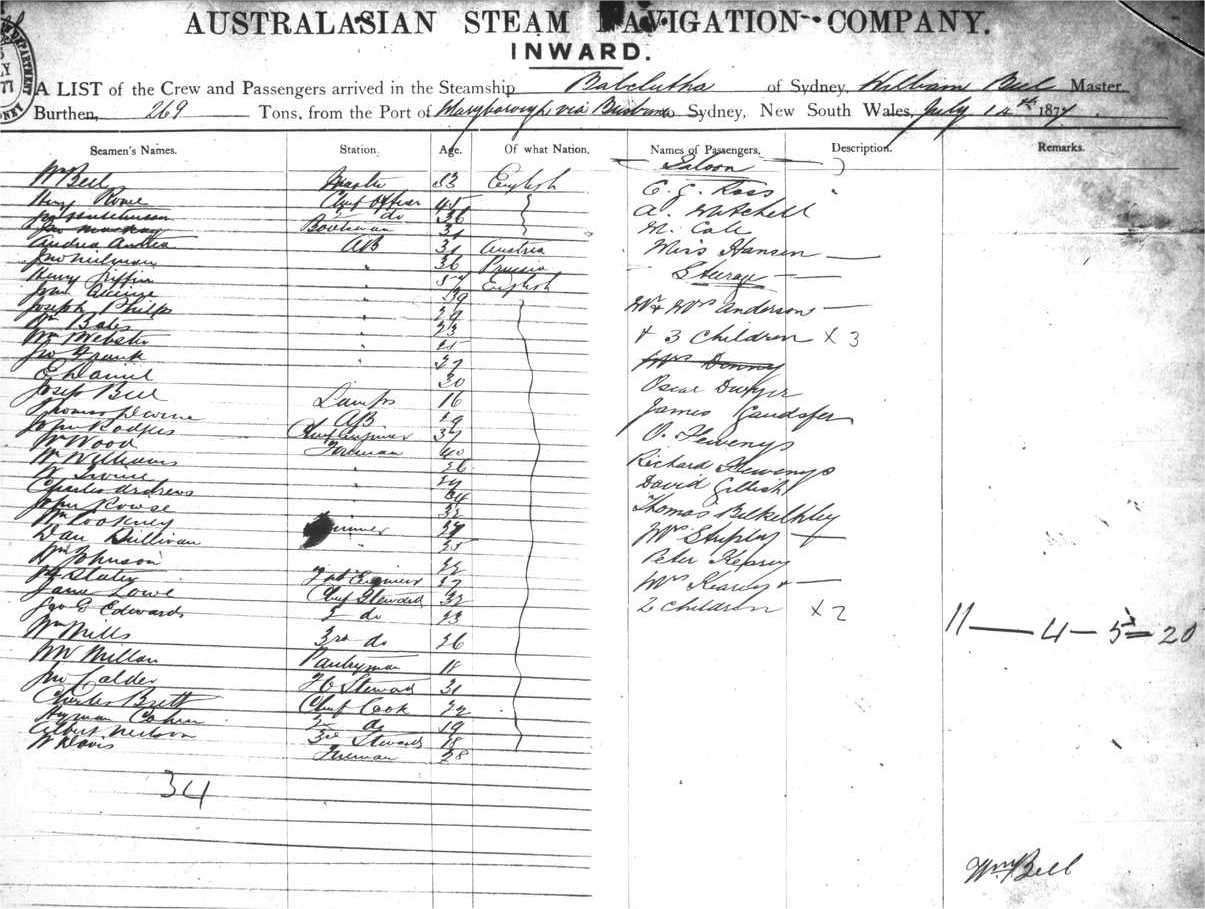 AUSTRALASIAN STEAM NAVIGATION COMPANY.
INWARD.
A LIST of the Crew and Passengers arrived in the Steamship Balclutha of Sydney, William Bell Master,
Burthen, 269 Tons, from the Port of Maryborough via Brisbane to Sydney, New South Wales, July 14th 1877
Seamen's Names. Station. Age. Of what Nation. Names of Passengers. Description. Remarks.
Saloon
Wm Bell Master 53 English
C. G. Ross
Hery Rowe Chief Officer 45
A. Mitchell
Jno Hutchinson 2nd do 36
Jno Mackay Boatswain 31
M. Cole
Andrea AB 31 Austria
Miss Hansen
Jno 36 Prussia
Steerage
Henry Griffin 57 English
39
Mr & Mrs Anderson
Joseph Philps 29
Wm Bates 23
& 3 Children X 3
Wm Webster 25
Jno Frank 27
Mrs Denny
E Daniel 30
Oscar Dwyer
Josep Bell Lamps 16
James
Thomas Devine AB 19
John Rodgers Chief Engineer 37
O. Flewenys
W Wood Fireman 40
Wm Williams 26
Richard Flewenys
W Irvine
David
Charles Andrews
John Rowse 32
Thomas
Wm Cockney
Dan Sullivan 25
Mrs
W Johnson 22
Peter
W Slater Engineer 37
Mrs &
Jane Lowe Chief Steward 32
2 Children X 2
Geo E Edwards 2 do 23
11 — 4 — 5 = 20
Wm Mills 3rd do 26
W Millan Pantryman 18
Jno Calder F C Steward 31
Charles Brett Chief Cook 22
Hyman Cohen 2nd do 19
Albert Neilson 3rd Steward 18
W Davis Fireman 28
34
Wm Bell